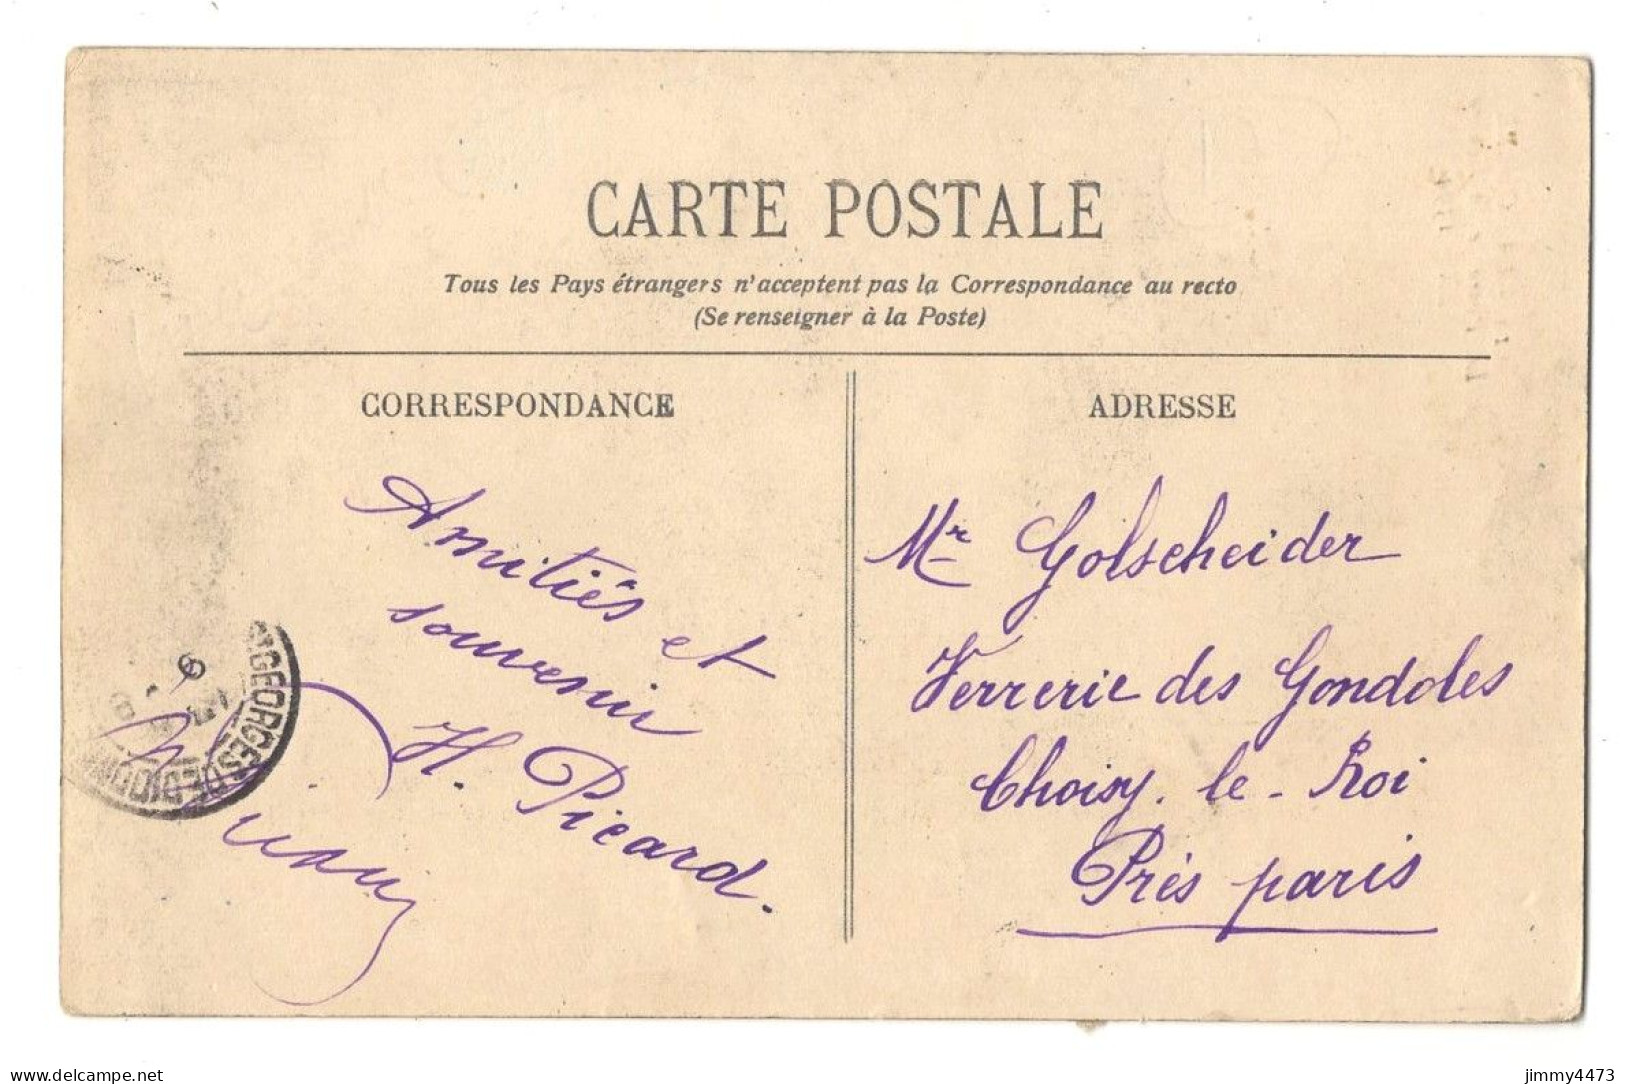 CARTE POSTALE
Tous les Pays étrangers n'acceptent pas la Correspondance au recto
(Se renseigner à la Poste)
CORRESPONDANCE
Amitiés et
souvenir
H. Picard.
ADRESSE
Mr Golscheider
Verrerie des Gondoles
Choisy-le-Roi
Près paris
ST GEORGES DE DIDONNE
www.delcampe.net
jimmy4473